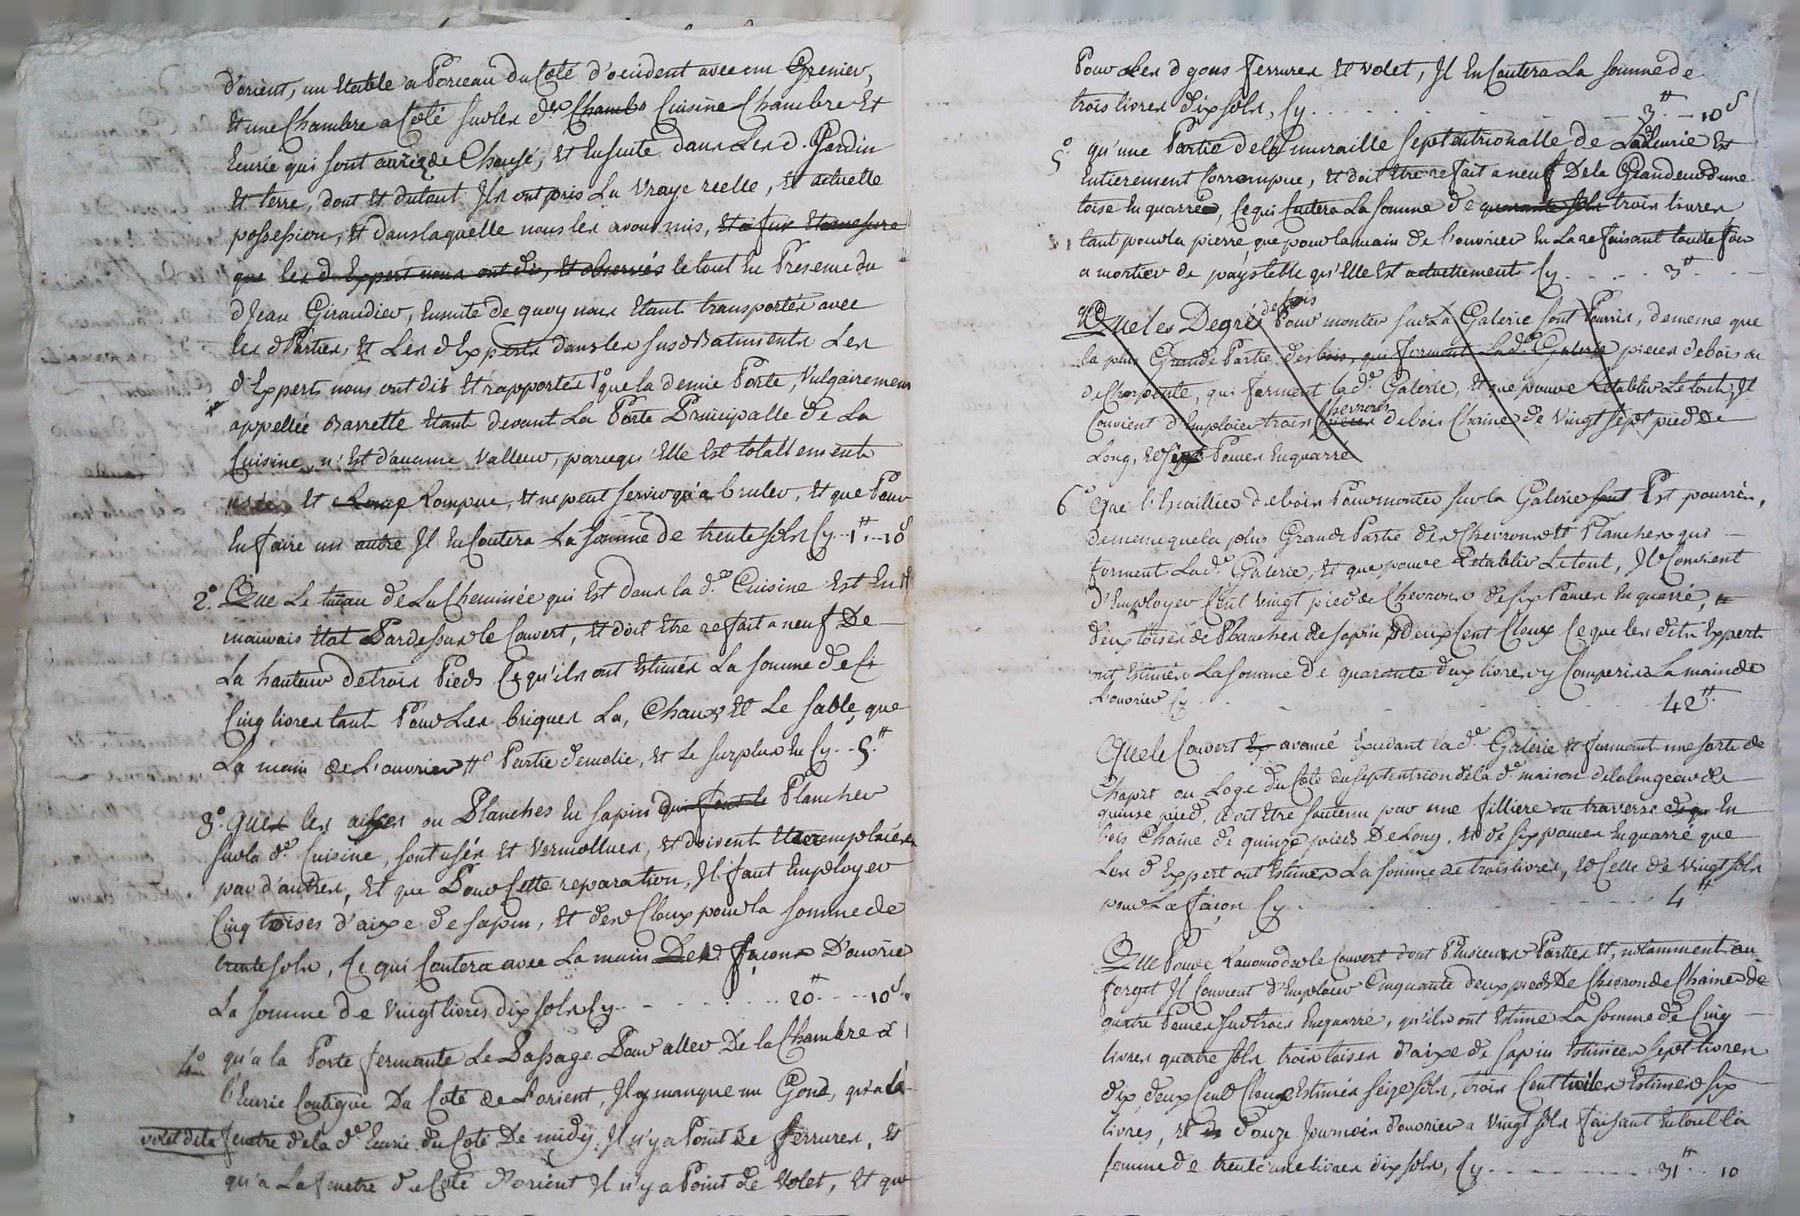 d'orient, un Etable a Porceau du Coté d'occident avec un Grenier,
Et une Chambre a Coté sur les des Chambe Cuisine Chambre Et
Ecurie qui sont au rez de Chaussé, Et Ensuite dans Les d. Jardin
Et terre, dont Et dutout Ils ont pris La vraye reelle, Et actuelle
possession, Et dans laquelle nous les avons mis, Et a fur Et a mesure
que les d Expert nous ont dis, Et observés le tout En Presence du
d Jean Giraudier, Ensuite de quoy nous Etant transportés avec
les d Parties, Et Les d Experts dans les susd Batiments Les
d'Expert nous ont dit Et rapportés 1o que la demie Porte, Vulgairement
appellée Barrette Etant devant La Porte Principalle de La
Cuisine, n'Est d'aucune Valleur, parcequ'Elle Est totallement
usée, Et Romp Rompue, Et ne peut servir qu'a bruler, Et que Pour
En faire un autre Il En Coutera La somme de trente sols Cy.. 1tt.. 10s
2o. Que Le tuiau de La Cheminée qui Est dans la de. Cuisine Est En
mauvais Etat Par dessus le Couvert, Et doit Etre refait a neuf De
La hauteur de trois Pieds Ce qu'ils ont Estimés La somme de
Cinq livres tant Pour Les briques La, Chaux Et Le sable, que
La main de L'ouvrier Partie demolie, Et Le surplus En Cy.. 5.tt
3o. Que les aisses ou Planches En sapin qui font le Plancher
sur la de. Cuisine, sont usés Et Vermollues, Et doivent Etre remplacées
par d'autres, Et que Pour Cette reparation, Il faut Employer
Cinq toises d'aixe de sapin, Et des Cloux pour la somme de
trente sols, Ce qui Coutera avec La main Des façons D'ouvrie
La somme de Vingt livres dix sols Cy - - - - - 20tt.. - - 10s.
4o. qu'a la Porte fermante Le Passage Pour aller De la Chambre a
l'Ecurie Contigue Du Coté de L'orient, Il y manque un Gond, qu'a la
volet de la fenetre de la de Ecurie du Coté De midy. Il n'y a Point de ferrures, Et
qu'a La fenetre du Coté d'orient Il n'y a Point de Volet, Et que
Pour Les d gons ferrures Et Volet, Il En Coutera La somme de
trois livres dix sols, Cy . . . . . . . . 3tt. - 10s
5o. qu'une Partie de la muraille septentrionalle de La d Ecurie Est
Entierement Corrompue, Et doit Etre refait a neuf De la Grandeur d'une
toise En quarré, Ce qui Coutera La somme de quarante sols trois livres
tant pour la pierre, que pour la main de l'ouvrier En La refaisant toutte fois
a mortier de pays telle qu'Elle Est actuellement Cy - - - - 3tt. - -
Que les Degrés de bois Pour monter sur La Galerie sont Pourris, de meme que
la plus Grande Partie des bois, qui forment La de. Galerie pieces de bois ou
de Charpente, qui forment la de. Galerie, Et que pour Retablir Le tout, Il
Convient d'Emploier trois Chevrons de bois Chaine de Vingt sept pied De
Long, Pouces En quarré
6o Que l'Escallier de bois Pour monter sur la Galerie sont Est pourris,
de meme que la plus Grande Partie des Chevrons Et Planches qui -
forment La de. Galerie, Et que pour Retablir Le tout, Il Convient
d'Employer Cent Vingt pied de Chevrons de six Pouces En quarré,
deux toises de Planches de sapin, Et deux Cent Cloux Ce que les dits Expert
ont Estimés La somme de quarante deux livres y Comperis La main de
L'ouvrier Cy . . - - - - - 42tt.
Que le Couvert Ex avancé Excedant la de. Galerie Et formant une sorte de
Chapit ou Loge du Coté du septentrion de la de maison de la longueur de
quinze pied, doit Etre soutenu par une filliere ou traverse de qu En
bois Chaine de quinze pieds De Long, Et de six pouces En quarré que
Les d Expert ont Estimés La somme de trois livres, Et Celle de Vingt sols
pour La façon Cy . - - - - - - - 4tt
Que Pour Racomoder le Couvert dont Plusieurs Parties Et, notamment au
forget Il Convient d'Emploier Cinquante deux pieds De Chevron de Chaine de
quatre Pouces sur trois En quarré, qu'ils ont Estimé La somme de Cinq
livres quatre sols trois toises d'aixe de sapin Estimées sept livres
dix, deux Cent Cloux Estimés seize sols, trois Cent tuiles Estimées six
livres, Et de douze Journeés d'ouvrier a Vingt sols faisant En tout La
somme de trente une livres dix sols, Cy - - - - - - 31tt.. 10